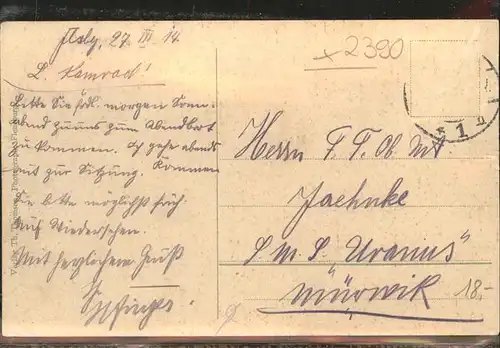 27. III. 14.
L. Kamrad!
Bitte Sie frdl. morgen Sonn-
abend zu uns zum Abendbrot
zu kommen. Ich gehe abends
mit zur Sitzung. Kommen
Sie bitte möglichst früh.
Auf Wiedersehen.
Mit herzlichem Gruß
x2390
1
Herrn F. T. Ob. Mt
Jaehnke
S. M. S. "Uranus"
Mürwik
18.-